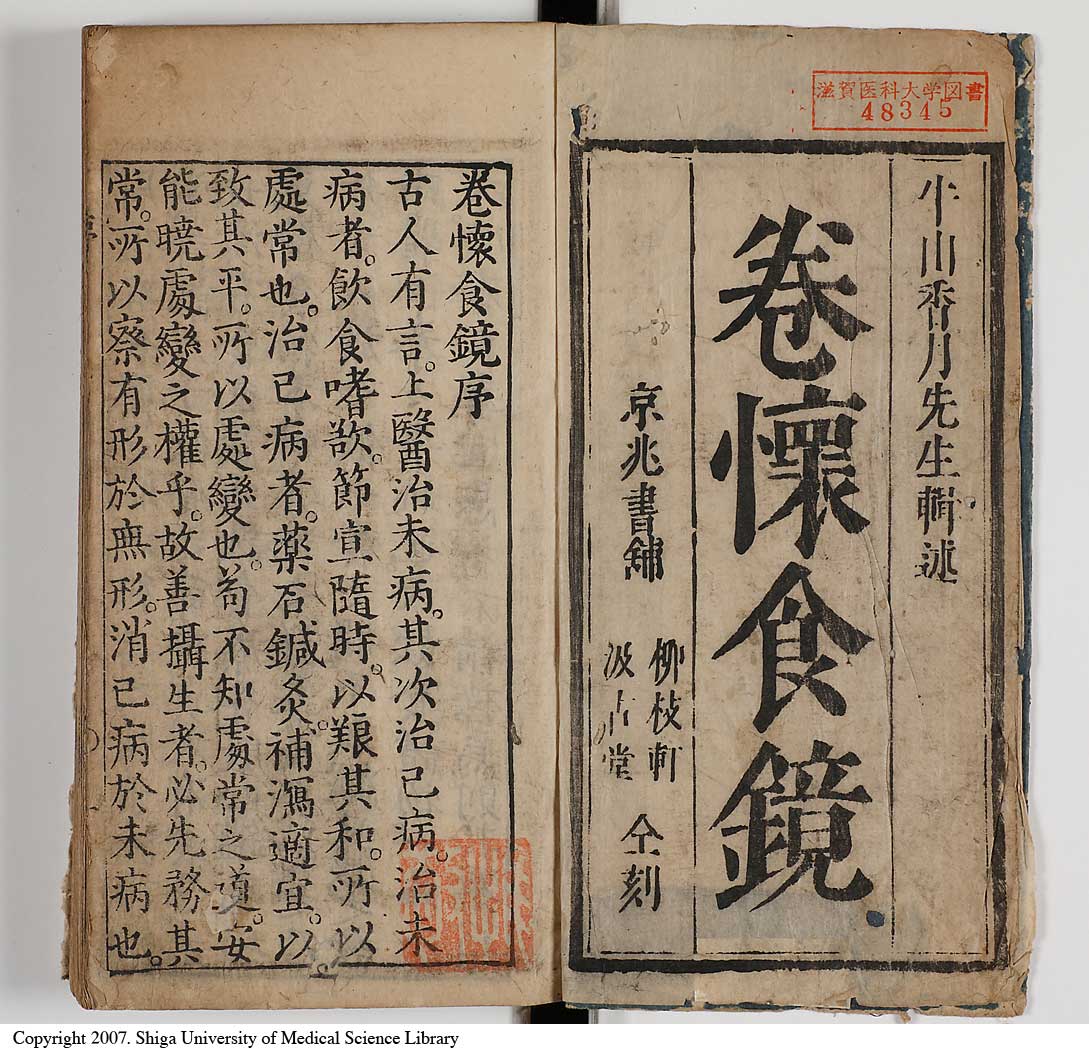 滋賀医科大学図書
48345
牛山香月先生輯述
卷懷食鏡
京兆書舗
柳枝軒
汲古堂
仝刻
卷懷食鏡序
古人有言。上醫治未病。其次治已病。治未
病者。飲食嗜欲。節宣隨時。以頤其和。所以
處常也。治已病者。藥石鍼灸。補瀉適宜。以
致其平。所以處變也。苟不知處常之道。安
能曉處變之權乎。故善攝生者。必先務其
常。所以察有形於無形。消已病於未病也。
Copyright 2007. Shiga University of Medical Science Library